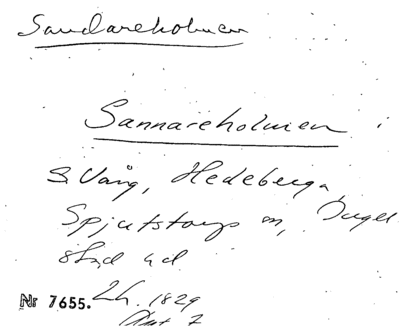 Sandareholmen
Sannareholmen
S. Vång, Hedeberga,
Spjutstorps sn, Ingel
stad hd
Nr 7655. L.h. 1829
Akt 7